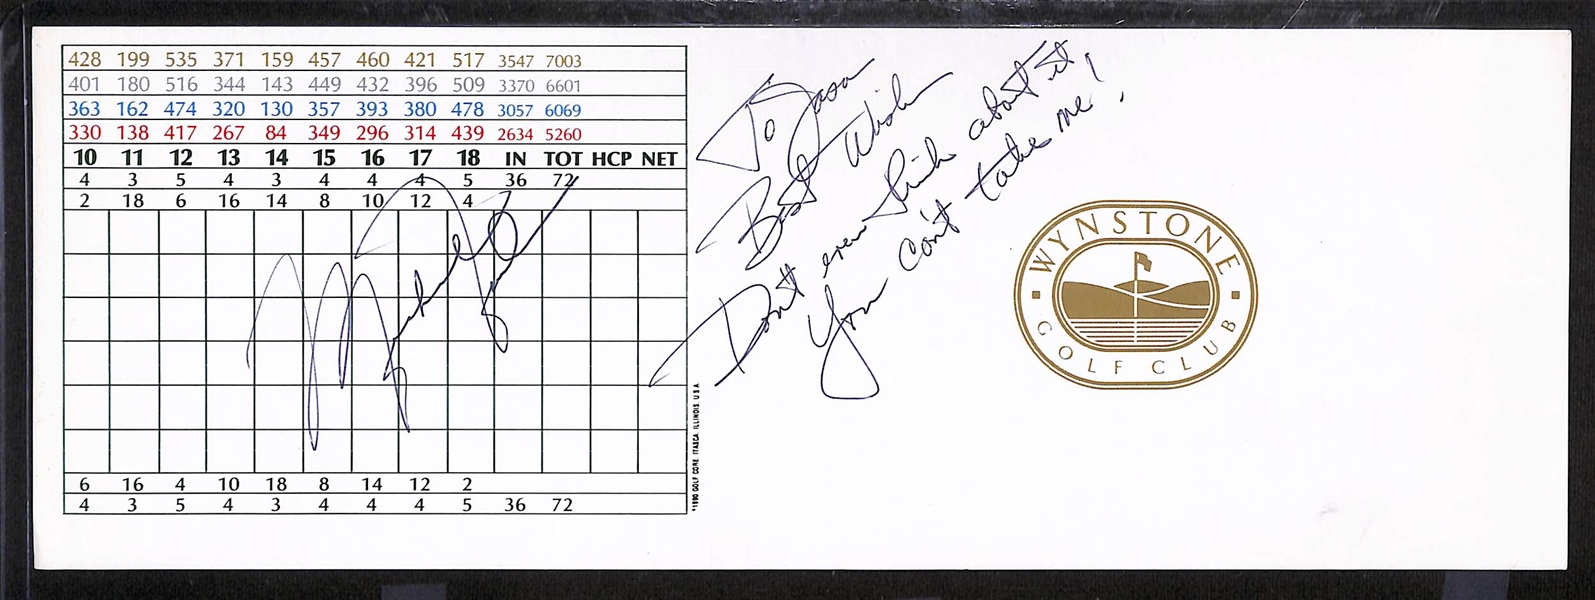 428 199 535 371 159 457 460 421 517 3547 7003
401 180 516 344 143 449 432 396 509 3370 6601
363 162 474 320 130 357 393 380 478 3057 6069
330 138 417 267 84 349 296 314 439 2634 5260
10 11 12 13 14 15 16 17 18 IN TOT HCP NET
4 3 5 4 3 4 4 4 5 36 72
2 18 6 16 14 8 10 12 4
6 16 4 10 18 8 14 12 2
4 3 5 4 3 4 4 4 5 36 72
©1990 GOLF CORE ITASCA, ILLINOIS U.S.A.
Michael Jordan
To Jason
Best Wishes
Don't even think about it
You can't take me!
WYNSTONE
GOLF CLUB